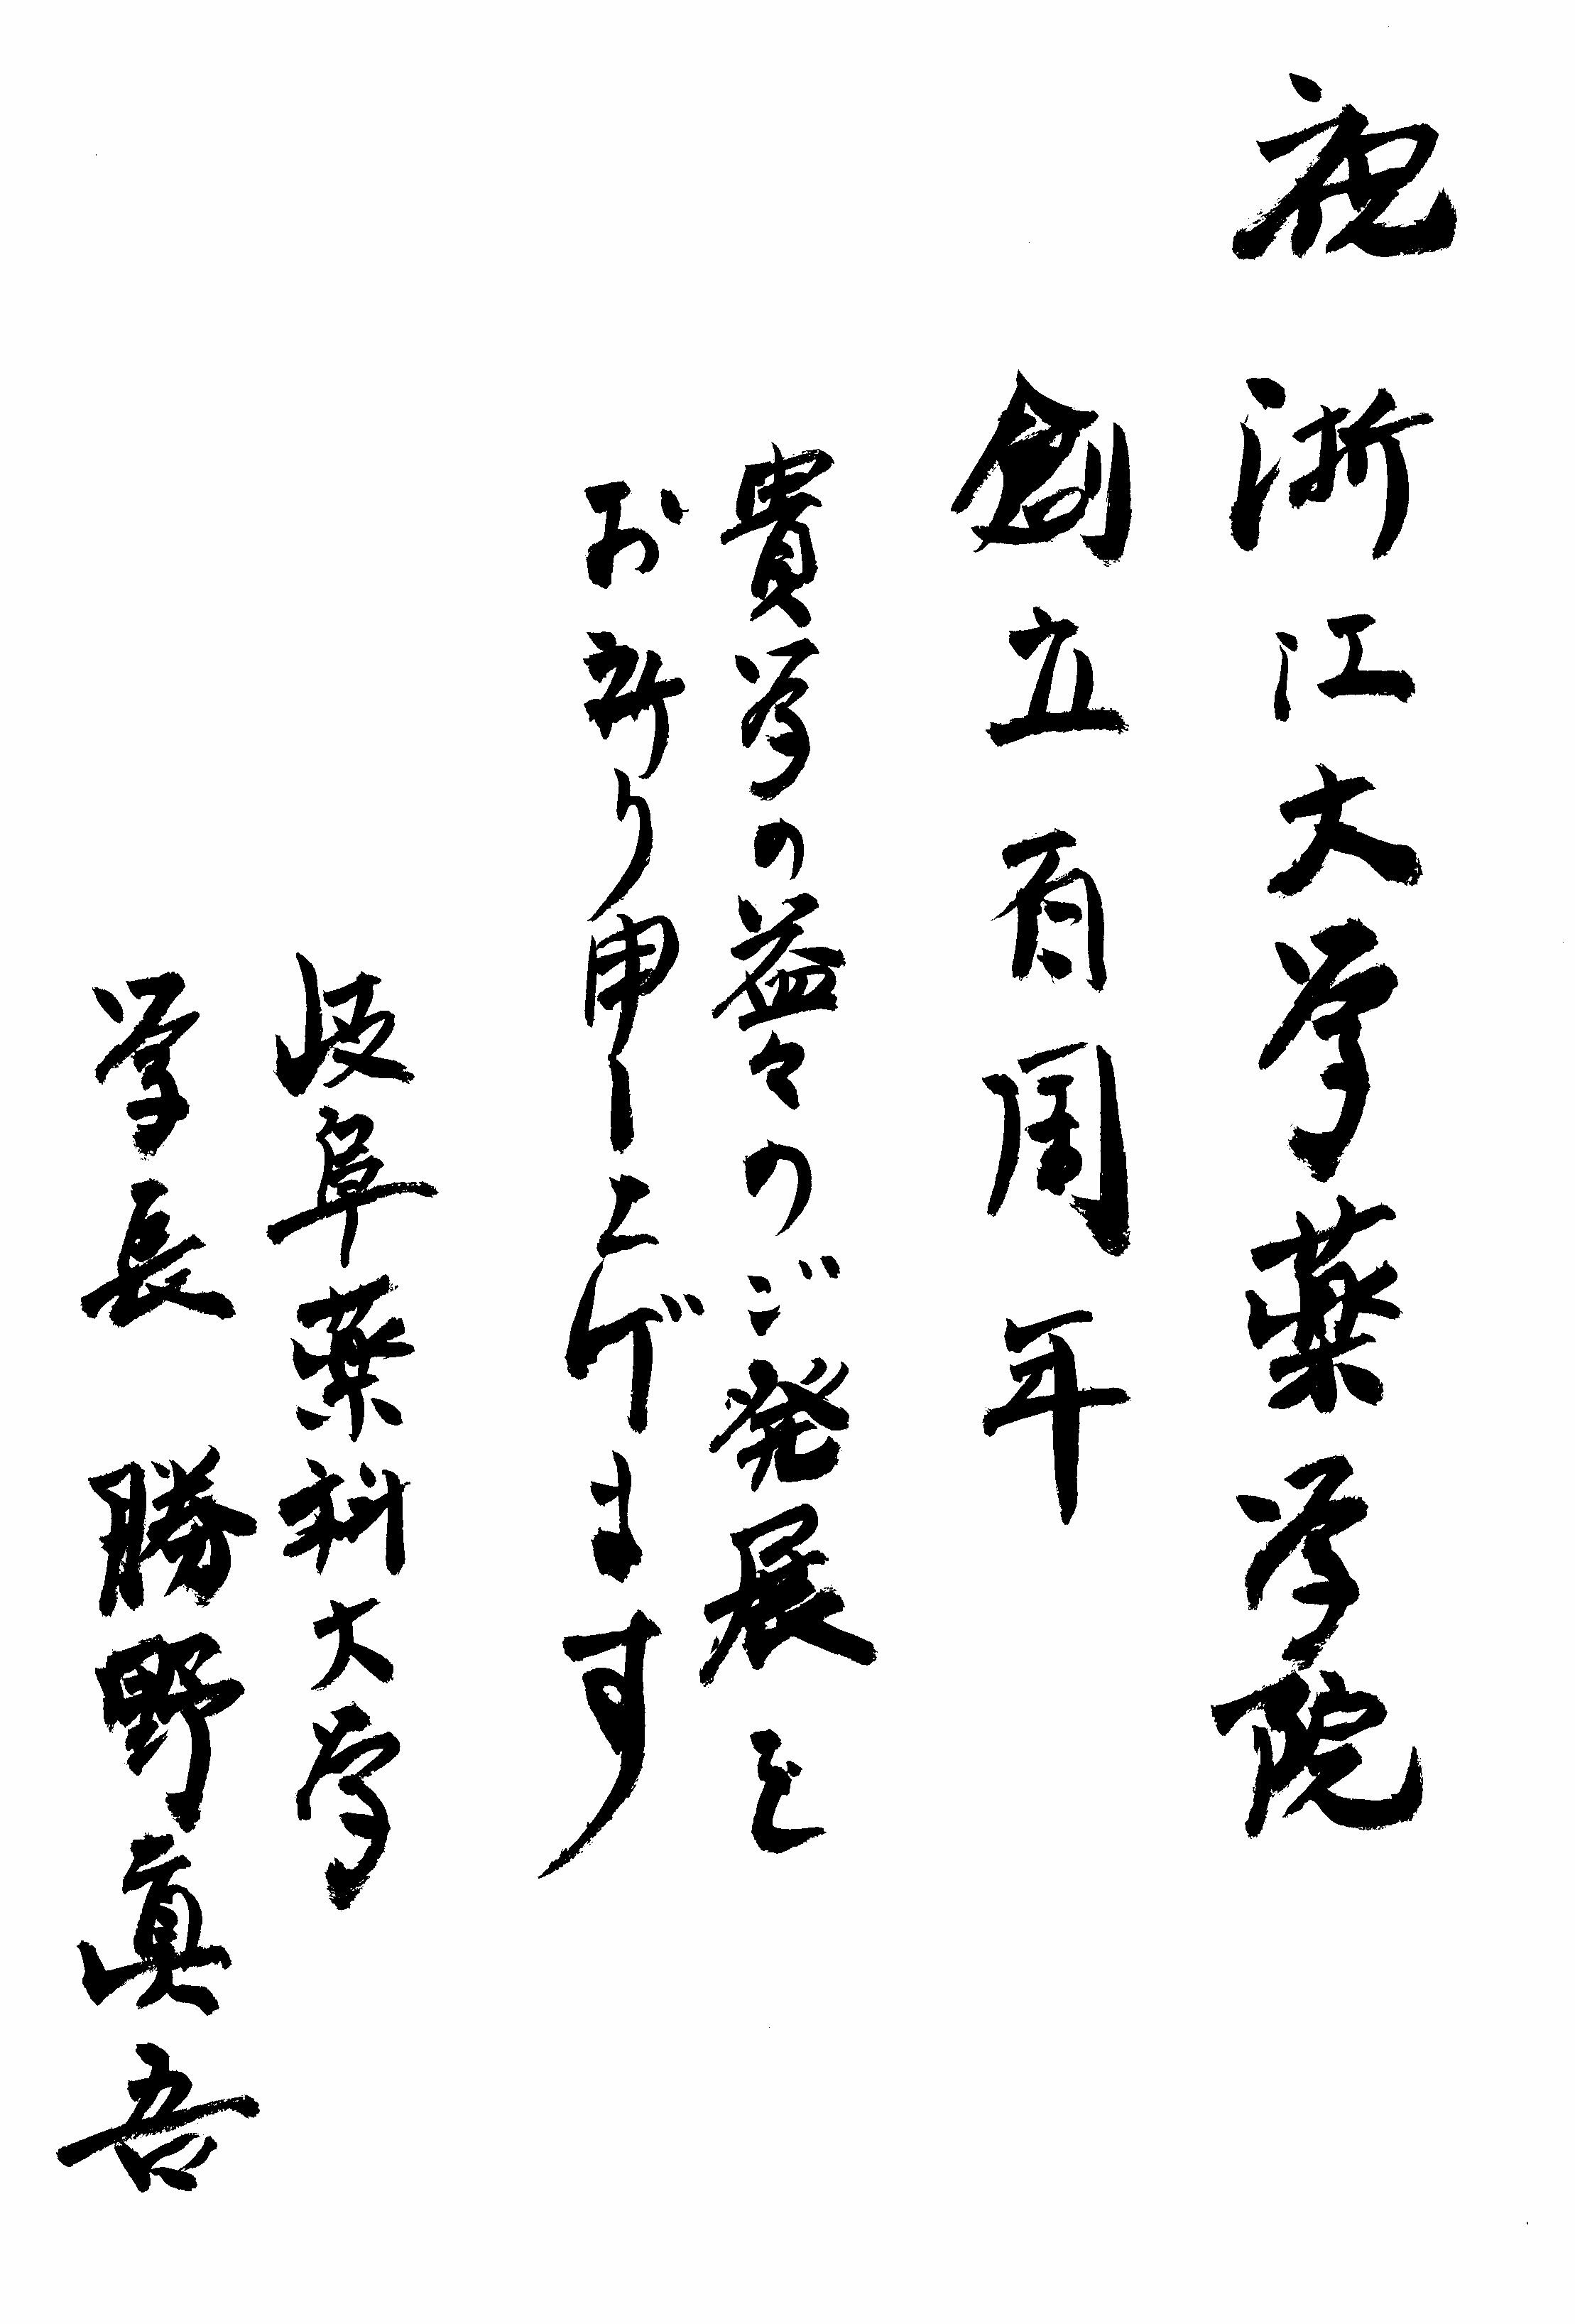 祝 浙江大学薬学院
創立百周年
貴学の益々のご発展を
お祈り申し上げます
岐阜薬科大学
学長 勝野眞吾